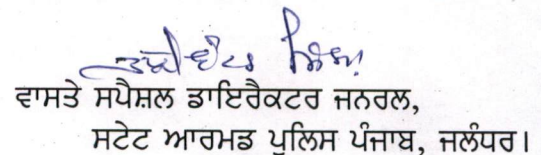 ਵਾਸਤੇ ਸਪੈਸ਼ਲ ਡਾਇਰੈਕਟਰ ਜਨਰਲ,
ਸਟੇਟ ਆਰਮਡ ਪੁਲਿਸ ਪੰਜਾਬ, ਜਲੰਧਰ।